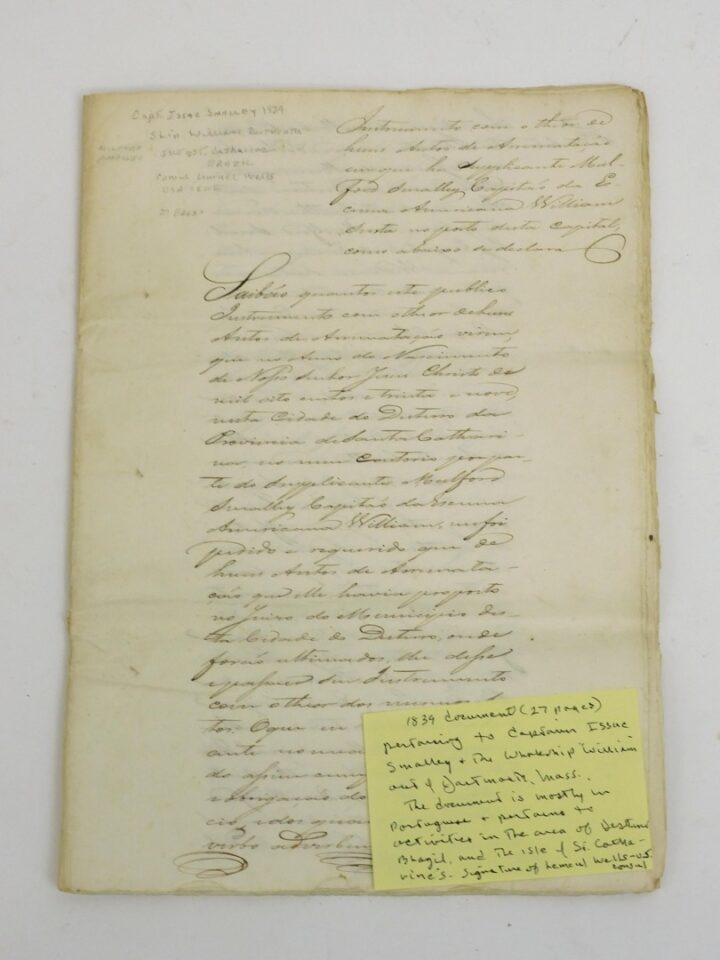 Capt. Isaac Smalley 1839
Ship William
BRAZIL
Consul Lemuel Wells
Instrumento com o theor de
huns Autos de Arrematação
em que he Supplicante Mul-
ford Smalley Capitão da E-
cuna Americana William
surta no porto desta Capital,
como abaixo se declara
Saibão quantos este publico
Instrumento com o theor de huns
Autos de Arrematação virem,
que no Anno do Nascimento
de Nosso Senhor Jesus Christo de
mil oito centos e trinta e nove
nesta Cidade do Desterro da
Provincia de Santa Cathari-
na, no meu Cartorio por par-
te do Supplicante Mulford
Smalley Capitão da Escuna
Americana William, me foi
pedido e requerido que de
huns Autos de Arremata-
ção que elle havia proposto
no Juizo do Municipio des-
ta Cidade do Desterro, onde
forão ultimados, lhe désse
e passasse seu Instrumento
com o theor dos mesmos
tos. O que
ante
do assim
obrigação do
cio, e dos quaes
verbo adverbum
1839 document (27 pages)
pertaining to Captain Issac
Smalley + the Whaleship William
out of Dartmouth, Mass.
The document is mostly in
Portuguese + pertains to
activities in the area of Desterro
Brazil, and the Isle of St. Cathe-
rine's. Signature of Lemuel Wells - U.S.
consul